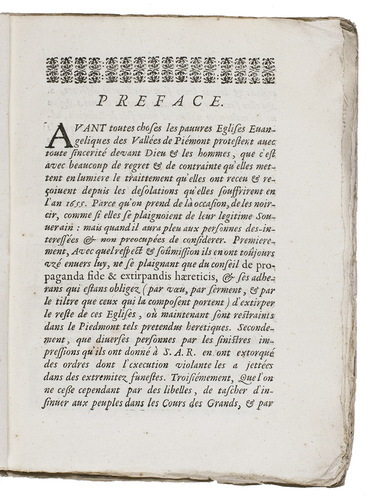 PREFACE.
AVANT toutes choses les pauures Eglises Euan-
geliques des Vallées de Piémont protestent auec
toute sincerité devant Dieu & les hommes, que c'est
avec beaucoup de regret & de contrainte qu'elles met-
tent en lumiere le traittement qu'elles ont receu & re-
çoiuent depuis les desolations qu'elles souffrirent en
l'an 1655. Parce qu'on prend de là occasion, de les noir-
cir, comme si elles se plaignoient de leur legitime Sou-
uerain : mais quand il aura pleu aux personnes des-in-
teressées & non preoccupées de considerer. Premiere-
ment, Avec quel respect & soûmission ils en ont toûjours
vzé envers luy, ne se plaignant que du conseil de pro-
paganda fide & extirpandis hæreticis, & ses adhe-
rans qui estans obligez (par vœu, par serment, & par
le tiltre que ceux qui la composent portent) d'extirper
le reste de ces Eglises, où maintenant sont restraints
dans le Piedmont tels pretendus heretiques. Seconde-
ment, que diuerses personnes par les sinistres im-
pressions qu'ils ont donné à S. A. R. en ont extorqué
des ordres dont l'execution violante les a jettées
dans des extremitez funestes. Troisiémement, Que l'on
ne cesse cependant par des libelles, de tascher d'in-
sinuer aux peuples dans les Cours des Grands, & par